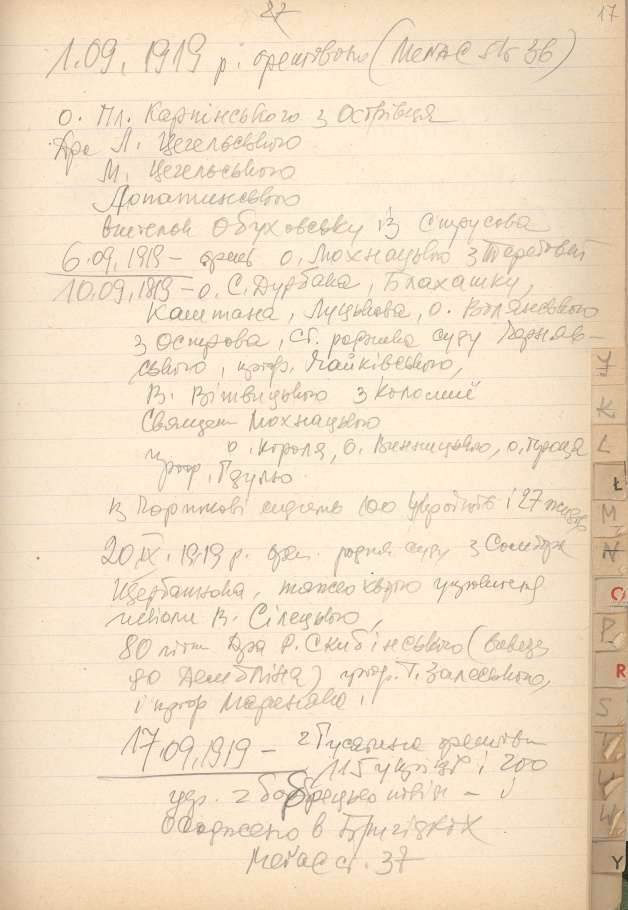 27 17
1.09.1919 р. арештовано (Метас St 36)
о. Пл. Карпінського з Острівця
Дра Л. Цегельського
М. Цегельського
Лопатинського
вчительк Обуховську із Струсова
6.09.1919 – ареш о. Мохнацького з
10.09.1819 – о. С. Дурбака, Блахашку,
Каштана, Луцькова, о. Волянського
з Острова, ст. радника суду Чарняв-
ського, проф. Чайківського,
В. Вітвицького з Коломиї
Священ Мохнацького
о. Короля, о. Винницького, о.
проф. Гдулю
В сидять 100 Українців і 27
20 IX. 1919 р. аре. радник суду з Самбора
Щербанюка, тяжко хворого управителя
школи В. Сілецького,
80 літн Дра Р. Скибінського (вивезе
до Демблина) проф. Т. Залеського,
і проф
17.09.1919 – з Гусятина арештов
115 україн і 200
укр. з Бобрецького повіт – і
осаджено в Бригідках
ст. 37
У
K
L
Ł
M
N
O
P
R
S
T
U
W
Y